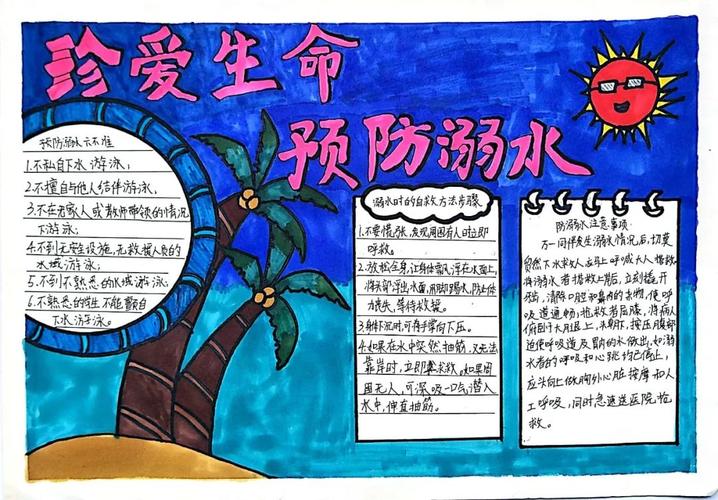 珍爱生命
预防溺水
预防溺水六不准
1.不私自下水游泳;
2.不擅自与他人结伴游泳;
3.不在无家人或教师带领的情况
下游泳;
4.不到无安全设施,无救援人员的
水域游泳;
5.不到不熟悉的水域游泳;
6.不熟悉的性生不能擅自
下水游泳。
溺水时的自救方法步骤
1.不要慌张,发现周围有人时立即
呼救。
2.放松全身,让身体飘浮在水面上,
将头部浮出水面,用脚踢水,防止体
力丧失,等待救援。
3.身体下沉时,可将手掌向下压。
4.如果在水中突然抽筋,又无法
靠岸时,立即求救,如果周
围无人,可深吸一口气潜入
水中,伸直抽筋。
防溺水注意事项
万一同伴发生溺水情况后,切莫
贸然下水救人,应马上呼喊大人
将溺水者抢救上岸后,立刻撬开
清除口腔和鼻内的杂物,使呼
吸道通畅;抢救者后腿,将病人
俯卧于大腿上,头朝下,按压腹部
迫使呼吸道及胃内的水倒出,如溺
水者的呼吸和心跳均已停止,
应立即做胸外心脏按摩和人
工呼吸,同时急速送医院抢
救。